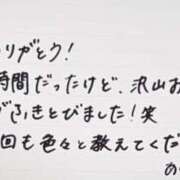 りがとう!
時間だったけど、沢山お
がふきとびました!笑
回も色々と教えてくだ